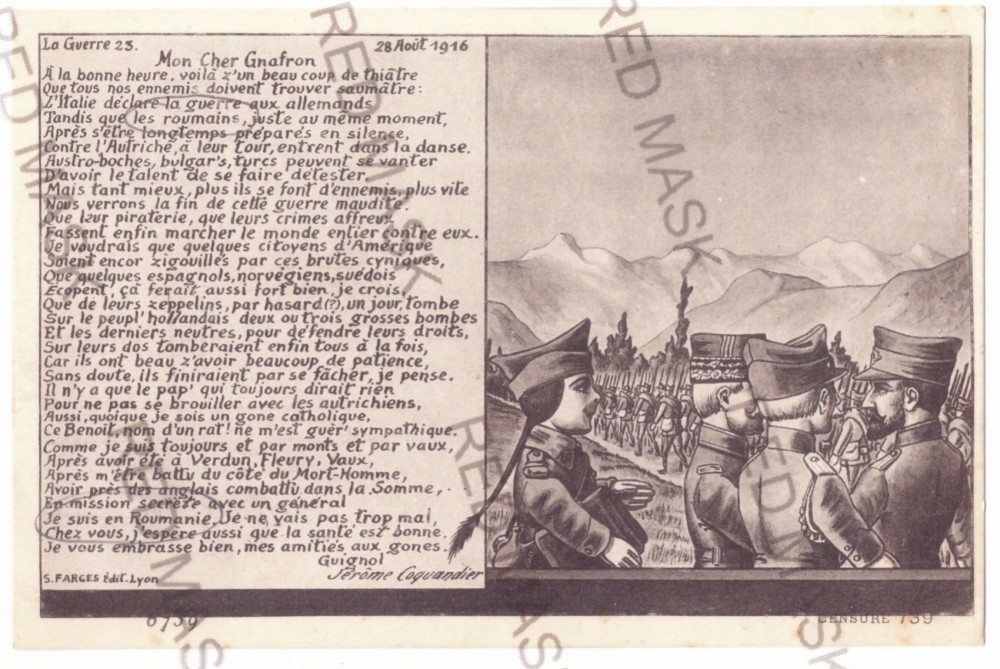 La Guerre 23.
28 Août 1916
Mon Cher Gnafron
À la bonne heure, voilà z'un beau coup de thiâtre
Que tous nos ennemis doivent trouver saumâtre:
L'Italie déclare la guerre aux allemands
Tandis que les roumains, juste au même moment,
Après s'être longtemps préparés en silence,
Contre l'Autriche, à leur tour, entrent dans la danse.
Austro-boches, bulgar's, turcs peuvent se vanter
D'avoir le talent de se faire détester.
Mais tant mieux, plus ils se font d'ennemis, plus vite
Nous verrons la fin de cette guerre maudite.
Que leur piraterie, que leurs crimes affreux
Fassent enfin marcher le monde entier contre eux.
Je voudrais que quelques citoyens d'Amérique
Soient encor zigouillés par ces brutes cyniques,
Que quelques espagnols, norvégiens, suédois
Ecopent, çà ferait aussi fort bien, je crois,
Que de leurs zeppelins, par hasard (?), un jour, tombe
Sur le peupl' hollandais deux ou trois grosses bombes
Et les derniers neutres, pour défendre leurs droits,
Sur leurs dos tomberaient enfin tous à la fois,
Car ils ont beau z'avoir beaucoup de patience,
Sans doute, ils finiraient par se fâcher, je pense.
Il n'y a que le pap' qui toujours dirait rien
Pour ne pas se brouiller avec les autrichiens,
Aussi, quoique je sois un gone catholique,
Ce Benoit, nom d'un rat! ne m'est guèr' sympathique.
Comme je suis toujours et par monts et par vaux,
Après avoir été à Verdun, Fleury, Vaux,
Après m'être battu du côté du Mort-Homme,
Avoir près des anglais combattu dans la Somme,
En mission secrète avec un général
Je suis en Roumanie. Je ne vais pas trop mal,
Chez vous, j'espère aussi que la santé est bonne.
Je vous embrasse bien, mes amitiés aux gones.
Guignol
Jérôme Coquandier
S. FARGES édit. Lyon
6739
CENSURE 739
RED MASK
RED MASK
RED MASK
RED MASK
RED MASK
RED MASK
RED MASK